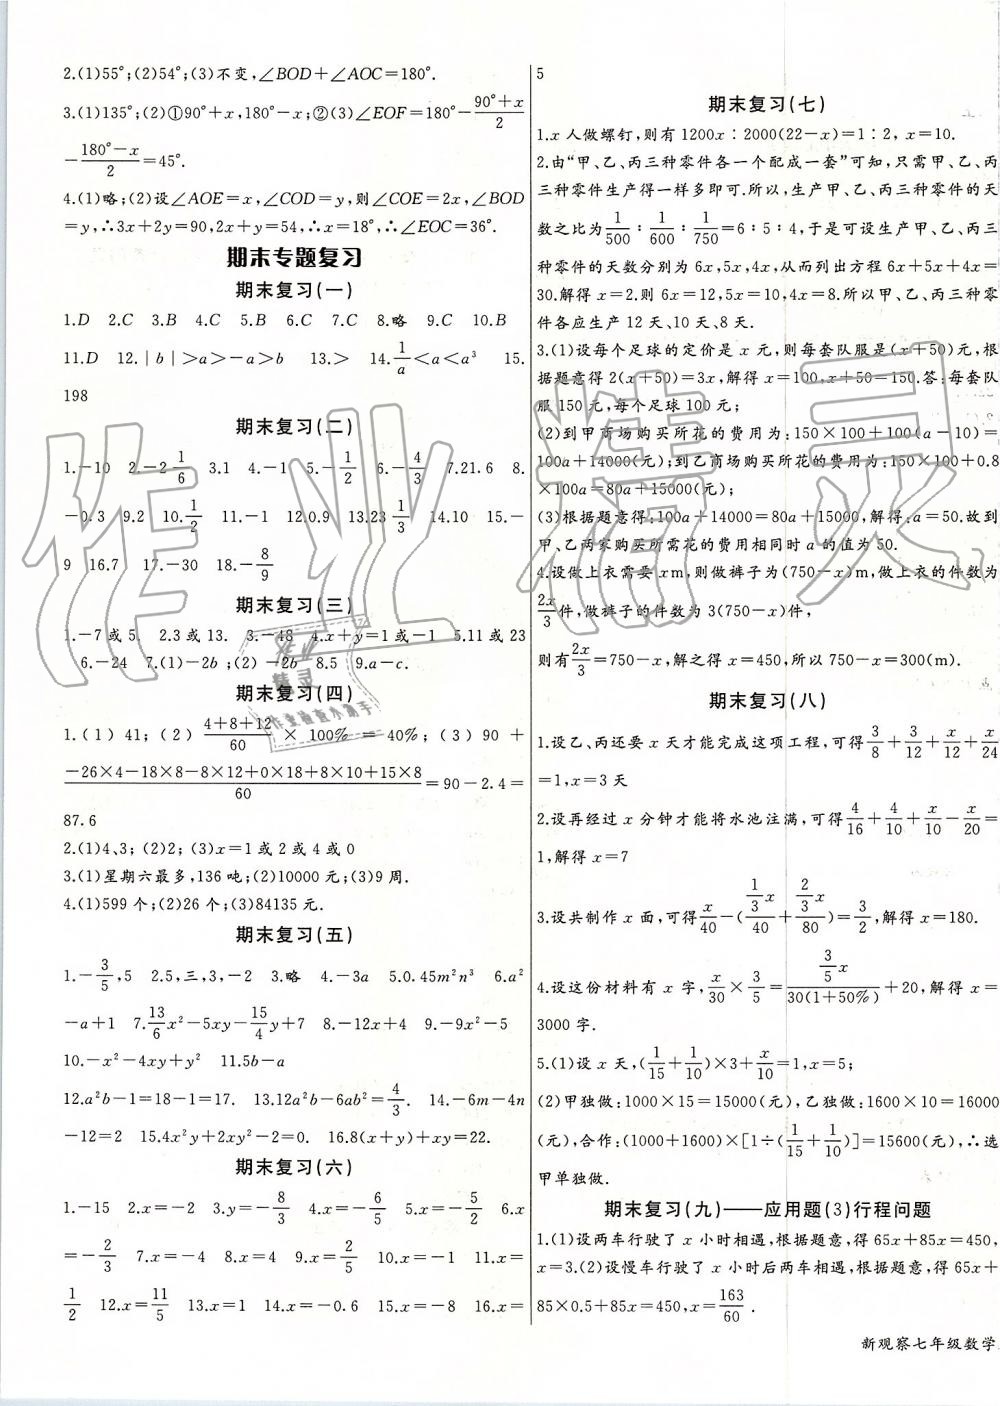 2.(1)55°;(2)54°;(3)不变,∠BOD+∠AOC=180°.
3.(1)135°;(2)①90°+x,180°-x;②(3)∠EOF=180°-(90°+x)/2
-(180°-x)/2=45°.
4.(1)略;(2)设∠AOE=x,∠COD=y,则∠COE=2x,∠BOD
=y,∴3x+2y=90,2x+y=54,∴x=18°,∠EOC=36°.
期末专题复习
期末复习(一)
1.D 2.C 3.B 4.C 5.B 6.C 7.C 8.略 9.C 10.B
11.D 12.|b|>a>-a>b 13.> 14.1/a<a<a³ 15.
198
期末复习(二)
1.-10 2.-2 1/6 3.1 4.-1 5.-1/2 6.-4/3 7.21.6 8.
-0.3 9.2 10.1/2 11.-1 12.0.9 13.23 1/3 14.10 15.-
9 16.7 17.-30 18.-8/9
期末复习(三)
1.-7或5. 2.3或13. 3.-48 4.x+y=1或-1 5.11或23
6.-24 7.(1)-2b;(2)-2b 8.5 9.a-c.
期末复习(四)
1.(1)41;(2)(4+8+12)/60×100%=40%;(3)90+
(-26×4-18×8-8×12+0×18+8×10+15×8)/60=90-2.4=
87.6
2.(1)4、3;(2)2;(3)x=1或2或4或0
3.(1)星期六最多,136吨;(2)10000元;(3)9周.
4.(1)599个;(2)26个;(3)84135元.
期末复习(五)
1.-3/5,5 2.5,三,3,-2 3.略 4.-3a 5.0.45m²n³ 6.a²
-a+1 7.13/6x²-5xy-15/4y+7 8.-12x+4 9.-9x²-5
10.-x²-4xy+y² 11.5b-a
12.a²b-1=18-1=17. 13.12a²b-6ab²=4/3. 14.-6m-4n
-12=2 15.4x²y+2xy²-2=0. 16.8(x+y)+xy=22.
期末复习(六)
1.-15 2.x=-2 3.y=-8/3 4.x=-6/5 5.x=-5/2 6.x
=-2/3 7.x=-4 8.x=4 9.x=2/5 10.x=-1 11.x=
1/2 12.x=11/5 13.x=1 14.x=-0.6 15.x=-8 16.x=
5
期末复习(七)
1.x人做螺钉,则有1200x∶2000(22-x)=1∶2, x=10.
2.由“甲、乙、丙三种零件各一个配成一套”可知,只需甲、乙、丙
三种零件生产得一样多即可.所以,生产甲、乙、丙三种零件的天
数之比为1/500∶1/600∶1/750=6∶5∶4,于是可设生产甲、乙、丙三
种零件的天数分别为6x,5x,4x,从而列出方程6x+5x+4x=
30.解得x=2.则6x=12,5x=10,4x=8.所以甲、乙、丙三种零
件各应生产12天、10天、8天.
3.(1)设每个足球的定价是x元,则每套队服是(x+50)元,根
据题意得2(x+50)=3x,解得x=100,x+50=150.答:每套队
服150元,每个足球100元;
(2)到甲商场购买所花的费用为:150×100+100(a-10)=
100a+14000(元);到乙商场购买所花的费用为:150×100+0.8
×100a=80a+15000(元);
(3)根据题意得:100a+14000=80a+15000,解得:a=50.故到
甲、乙两家购买所需花的费用相同时a的值为50.
4.设做上衣需要xm,则做裤子为(750-x)m,做上衣的件数为
2x/3件,做裤子的件数为3(750-x)件,
则有2x/3=750-x,解之得x=450,所以750-x=300(m).
期末复习(八)
1.设乙、丙还要x天才能完成这项工程,可得3/8+3/12+x/12+x/24
=1,x=3天
2.设再经过x分钟才能将水池注满,可得4/16+4/10+x/10-x/20=
1,解得x=7
3.设共制作x面,可得x/40-(1/3x/40+2/3x/80)=3/2,解得x=180.
4.设这份材料有x字,x/30×3/5=3/5x/30(1+50%)+20,解得x=
3000字.
5.(1)设x天,(1/15+1/10)×3+x/10=1,x=5;
(2)甲独做:1000×15=15000(元),乙独做:1600×10=16000
(元),合作:(1000+1600)×[1÷(1/15+1/10)]=15600(元),∴选
甲单独做.
期末复习(九)——应用题(3)行程问题
1.(1)设两车行驶了x小时相遇,根据题意,得65x+85x=450,
x=3.(2)设慢车行驶了x小时后两车相遇,根据题意,得65x+
85×0.5+85x=450,x=163/60.
新观察七年级数学
作业精灵
作业
精灵
作业检查小助手